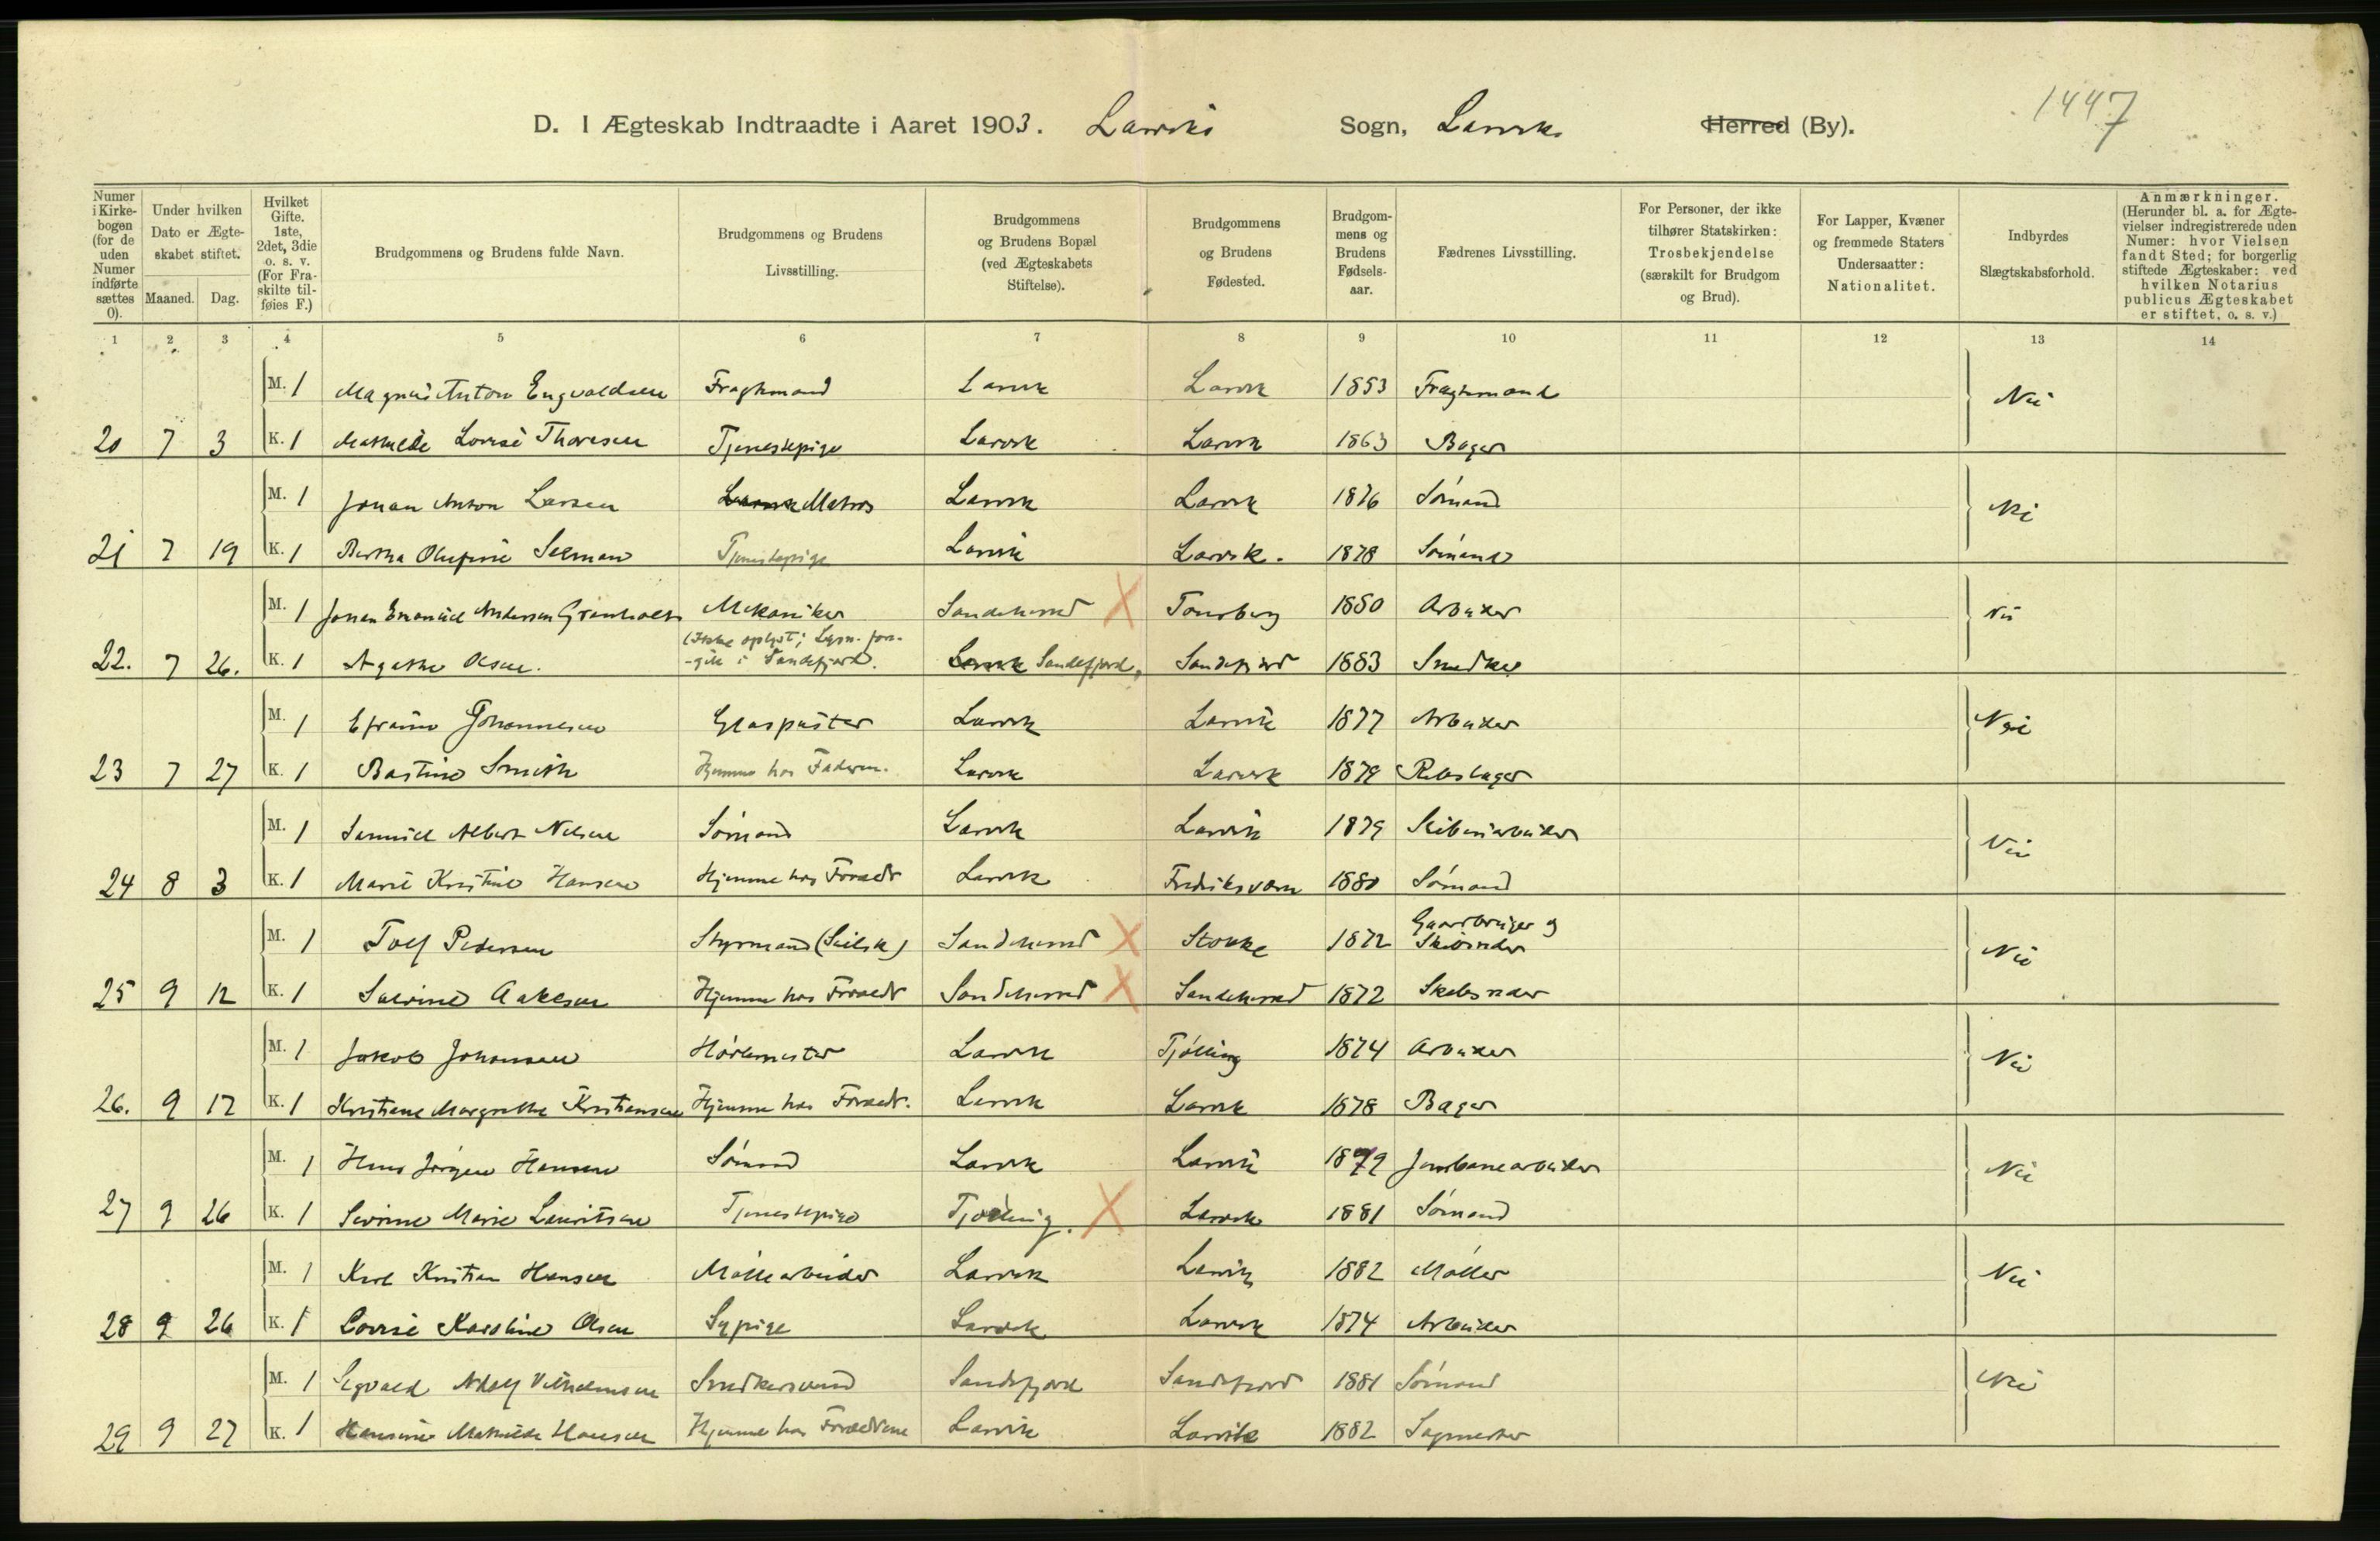 1447
D. I Ægteskab Indtraadte i Aaret 1903. Larviks Sogn, Larviks Herred (By).
Numer i Kirkebogen (for de uden Numer indførte sættes 0).
Under hvilken Dato er Ægteskabet stiftet.
Maaned. Dag.
Hvilket Gifte. 1ste, 2det, 3die o. s. v. (For Fraskilte tilføies F.)
Brudgommens og Brudens fulde Navn.
Brudgommens og Brudens Livsstilling.
Brudgommens og Brudens Bopæl (ved Ægteskabets Stiftelse).
Brudgommens og Brudens Fødested.
Brudgommens og Brudens Fødselsaar.
Fædrenes Livsstilling.
For Personer, der ikke tilhører Statskirken: Trosbekjendelse (særskilt for Brudgom og Brud).
For Lapper, Kvæner og fremmede Staters Undersaatter: Nationalitet.
Indbyrdes Slægtskabsforhold.
Anmærkninger. (Herunder bl. a. for Ægtevielser indregistrerede uden Numer: hvor Vielsen fandt Sted; for borgerlig stiftede Ægteskaber: ved hvilken Notarius publicus Ægteskabet er stiftet, o. s. v.)
1 2 3 4 5 6 7 8 9 10 11 12 13 14
M. 1 Magnus Anton Engvaldsen Fragtmand Larvik Larvik 1853 Fragtmand Nei
20 7 3 K. 1 Mathilde Lovise Thoresen Tjenestepige Larvik Larvik 1863 Bager
M. 1 Johan Anton Larsen Larvik Matros Larvik Larvik 1876 Sømand Nei
21 7 19 K. 1 Bertha Olufine Salman Tjenestepige Larvik Larvik. 1878 Sømand
M. 1 Johan Emanuel Andersen Grønholt Mekaniker Sandeherred X Tønsberg 1880 Arbeider Nei
(Ikke oplyst; Lysn. fore-
22. 7 26. K. 1 Agathe Olsen. -gik i Sandefjord). Larvik Sandefjord Sandefjord 1883 Snedker
M. 1 Efraim Johannesen Glaspuster Larvik Larvik 1877 Arbeider Nei
23 7 27 K. 1 Bastine Smith Hjemme hos Faderen. Larvik Larvik 1879 Rebslager
M. 1 Samuel Albert Nilsen Sømand Larvik Larvik 1879 Skibsarbeider Nei
24 8 3 K. 1 Marie Kristine Hansen Hjemme hos Foræld Larvik Fredriksværn 1880 Sømand
Gaardbruger og
M. 1 Tolf Pedersen Styrmand (Seilsk) Sandeherred X Stokke 1872 Skibsreder Nei
25 9 12 K. 1 Aakesen Hjemme hos Foræld Sandeherred X Sandeherred 1872 Skibsreder
M. 1 Jakob Johansen Larvik Tjølling 1874 Arbeider Nei
26. 9 12 K. 1 Kristiane Margrethe Kristiansen Hjemme hos Foræld. Larvik Larvik 1878 Bager
M. 1 Hans Jørgen Hansen Sømand Larvik Larvik 1879 Jernbanearbeider Nei
27 9 26 K. 1 Severine Marie Lauritsen Tjenestepige Tjølling. X Larvik 1881 Sømand
M. 1 Karl Kristian Hansen Møllearbeider Larvik Larvik 1882 Møller Nei
28 9 26 K. 1 Lovise Karoline Olsen Sypige Larvik Larvik 1874 Arbeider
M. 1 Sigvald Adolf Vilhelmsen Snedkersvend Sandefjord Sandefjord 1881 Sømand Nei
29 9 27 K. 1 Hansine Mathilde Hansen Hjemme hos Forældrene Larvik Larvik 1882 Sagmester